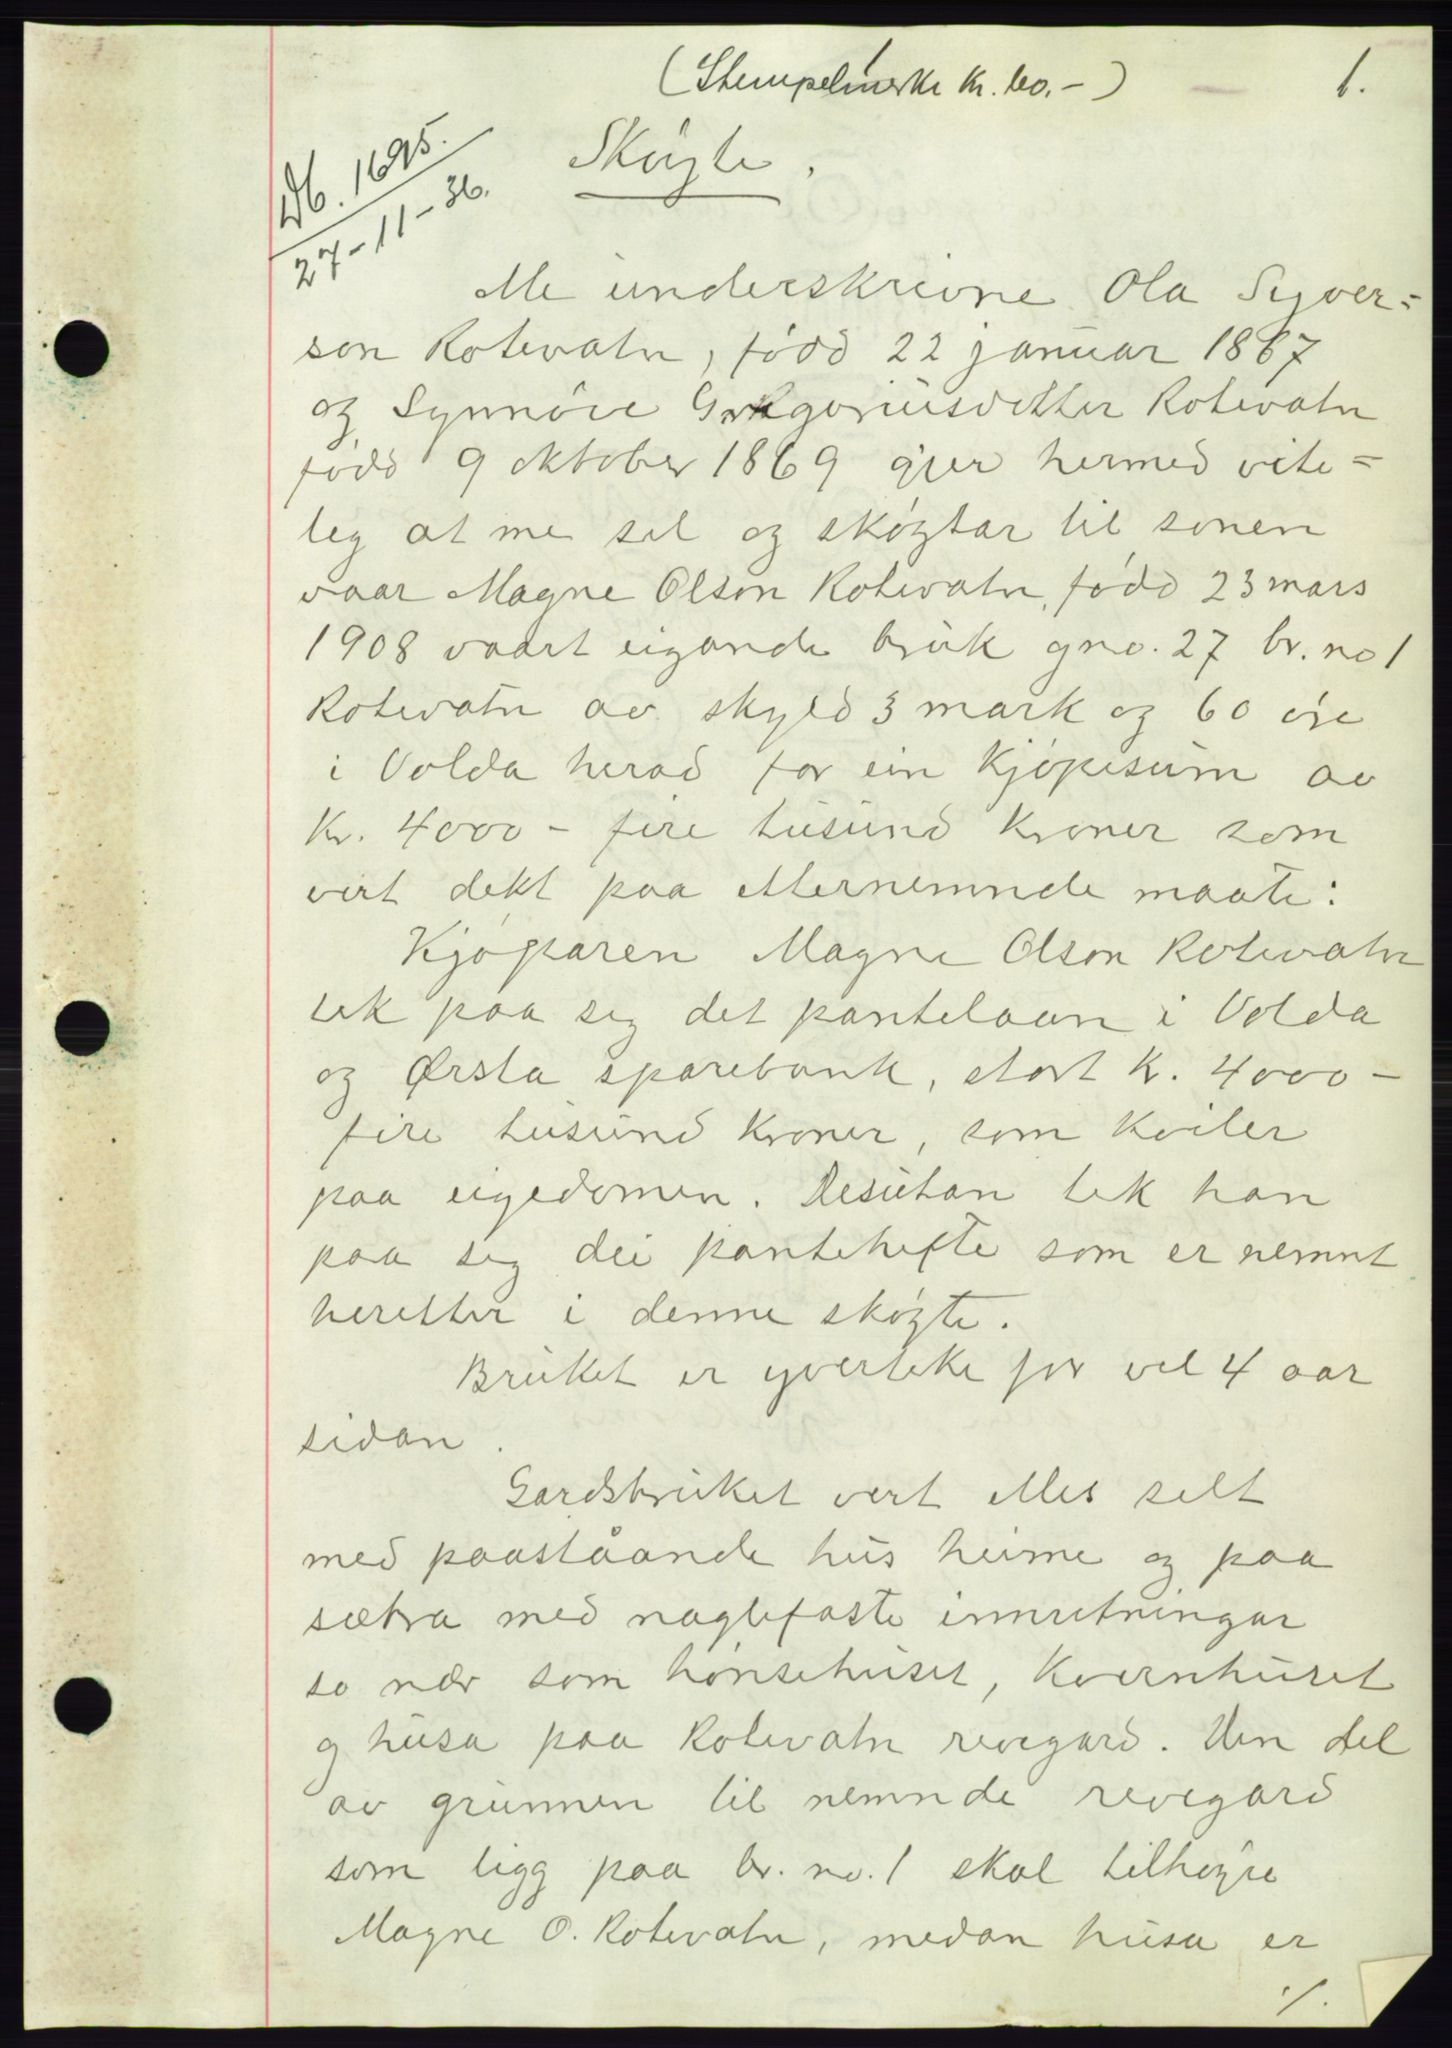 (Stempelmerke kr. 60.-)
1.
Db. 1695.
27-11-36.
Skøyte.
Me underskrivne Ola Syver=
son Rotevatn, född 22 januar 1867
og Synnöve Gregoriusdotter Rotevatn
född 9 oktober 1869 gjer hermed vite=
leg at me sel og sköytar til sonen
vaar Magne Olson Rotevatn, född 23 mars
1908 vaart eigande bruk gno. 27 br. no 1
Rotevatn av skyld 3 mark og 60 öre
i Volda herad for ein kjöpesum av
Kr. 4000 - fire tusund kroner som
vert dekt paa etternemnde maate:
Kjöparen Magne Olson Rotevatn
tek paa seg det pantelaan i Volda
og Ørsta sparebank, stort kr. 4000 -
fire tusund kroner, som kviler
paa eigedomen. Desutan tek han
paa seg dei pantehefte som er nemnt
heretter i denne sköyte.
Bruket er yverteke for vel 4 aar
sidan.
Gardsbruket vert elles selt
med paaståande hus heime og paa
sætra med naglefaste innretningar
so nær som hönsehuset, kvernhuset
og husa paa Rotevatn revegard. Den del
av grunnen til nemnde revegard
som ligg paa br. no. 1 skal tilhöyre
Magne O. Rotevatn, medan husa er
./.